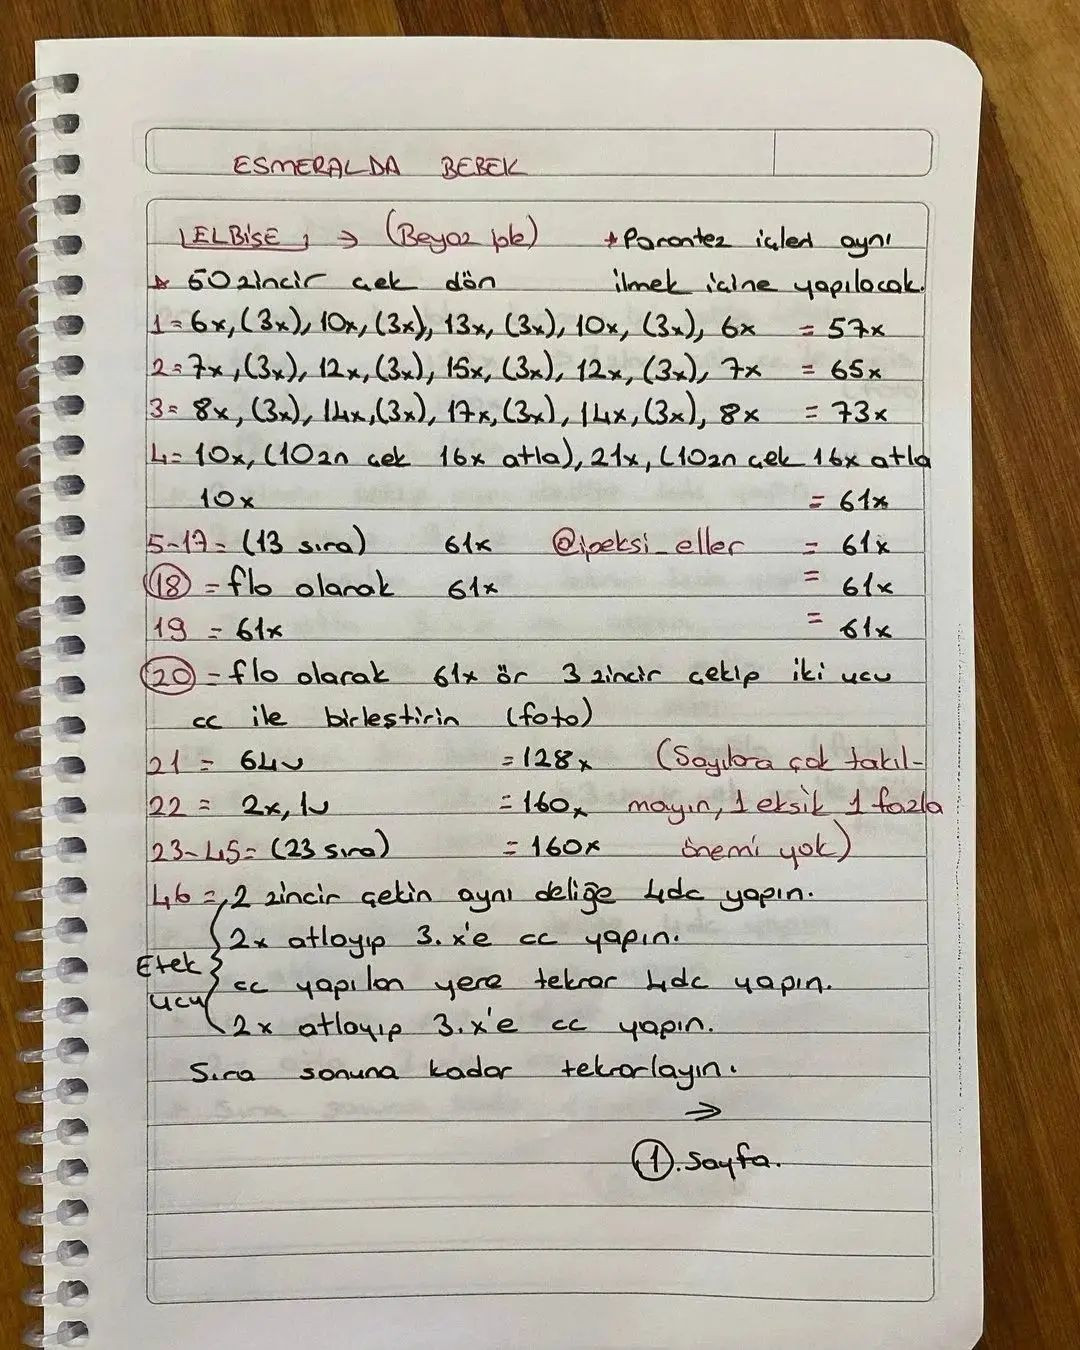 ESMERALDA BEBEK
ELBİSE → (Beyaz ip) * Parantez içleri aynı
* 50 zincir çek dön ilmek içine yapılacak.
1 = 6x, (3x), 10x, (3x), 13x, (3x), 10x, (3x), 6x = 57x
2 = 7x, (3x), 12x, (3x), 15x, (3x), 12x, (3x), 7x = 65x
3 = 8x, (3x), 14x, (3x), 17x, (3x), 14x, (3x), 8x = 73x
4 = 10x, (10zn çek 16x atla), 21x, (10zn çek 16x atla
10x = 61x
5-17 = (13 sıra) 61x @ipeksi_eller = 61x
18 = flo olarak 61x = 61x
19 = 61x = 61x
20 = flo olarak 61x ör 3 zincir çekip iki ucu
cc ile birleştirin (foto)
21 = 64v = 128x (Sayılara çok takıl-
22 = 2x, 1v = 160x mayın, 1 eksik 1 fazla
23-45 = (23 sıra) = 160x önemi yok)
46 = 2 zincir çekin aynı deliğe 4dc yapın.
2x atlayıp 3. x'e cc yapın.
Etek ucu
cc yapılan yere tekrar 4dc yapın.
2x atlayıp 3.x'e cc yapın.
Sıra sonuna kadar tekrarlayın.
→
1. Sayfa.